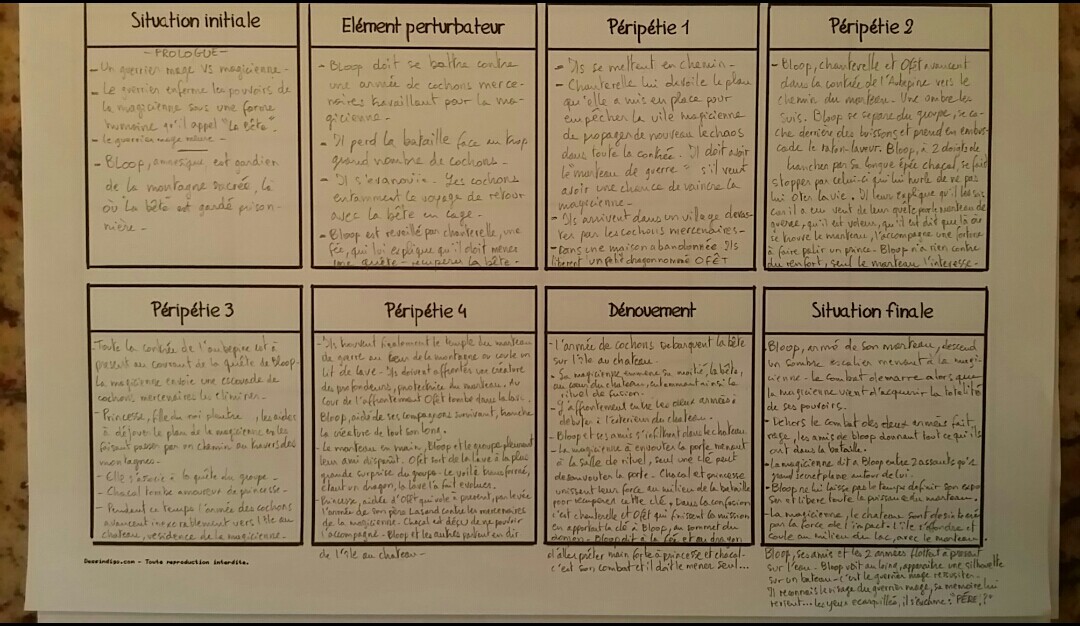 Situation initiale
- PROLOGUE -
- Un guerrier mage VS magicienne -
- Le guerrier enferme les pouvoirs de
la magicienne sous une forme
humaine qu'il appel "la bête".
- le guerrier mage meurt -
- Bloop, amnésique est gardien
de la montagne sacrée, là
où la bête est gardé prison-
nière -
Elément perturbateur
- Bloop doit se battre contre
une armée de cochons merce-
naires travaillant pour la ma-
gicienne -
- Il perd la bataille face au trop
grand nombre de cochons -
- Il s'évanouie - Les cochons
entamment le voyage de retour
avec la bête en cage -
- Bloop est réveillé par chanterelle, une
fée, qui lui explique qu'il doit mener
une quête - récupérer la bête -
Péripétie 1
- Ils se mettent en chemin -
- Chanterelle lui dévoile le plan
qu'elle a mis en place pour
empêcher la vile magicienne
de propager de nouveau le chaos
dans toute la contrée. Il doit avoir
"le marteau de guerre" s'il veut
avoir une chance de vaincre la
magicienne -
- Ils arrivent dans un village dévas-
tés par les cochons mercenaires -
- Dans une maison abandonnée Ils
libèrent un petit dragon nommé OFÊT
Péripétie 2
- Bloop, chanterelle et Ofêt avancent
dans la contrée de l'Aubépine vers le
chemin du marteau. Une ombre les
suis. Bloop se sépare du groupe, se ca-
che derrière des buissons et prend en embus-
cade le raton-laveur. Bloop, à 2 doigts de
trancher par sa longue épée Chacal, se fait
stopper par celui-ci qui lui hurle de ne pas
lui ôter la vie. Il leur explique qu'il les suis
car il a eu vent de leur quête par le marteau de
guerre, qu'il est voleur, qu'il est dit que là où
se trouve le marteau, l'accompagne une fortune
à faire palir un prince. Bloop n'a rien contre
du renfort, seul le marteau l'intéresse -
Péripétie 3
- Toute la contrée de l'aubépine est à
présent au courant de la quête de Bloop.
La magicienne envoie une escouade de
cochons mercenaires les éliminer -
- Princesse, fille du roi , les aides
à déjouer le plan de la magicienne en les
faisant passer par un chemin au travers des
montagnes.
- Elle s'associe à la quête du groupe -
- Chacal tombe amoureux de princesse -
- Pendant ce temps l'armée des cochons
avancent inexorablement vers l'Ile au
chateau, résidence de la magicienne -
Péripétie 4
- Ils trouvent finalement le temple du marteau
de guerre au coeur de la montagne où coule un
lit de lave - Ils devront affrontés une créature
des profondeurs, protectrice du marteau. Au
cour de l'affrontement Ofêt tombe dans la lave.
Bloop, aidé de ses compagnons survivant, tranche
la créature de tout son long.
- Le marteau en main, Bloop et le groupe, pleurent
leur ami disparût. Ofêt sort de la lave à la plus
grande surprise du groupe - Le voilà transformé,
étant un dragon, la lave l'a fait évoluer.
- Princesse, aidée d'Ofêt qui vole à présent, par levée
l'armée de son père Lasand contre les mercenaires
de la magicienne. Chacal est déçu de ne pouvoir
l'accompagné - Bloop et les autres partent en dir
de l'île au chateau -
Dénouement
- l'armée de cochons débarquent la bête
sur l'île au chateau.
- La magicienne emmène sa moitié, la bête,
au cour du chateau, entamment ainsi le
rituel de fusion.
- L'affrontement entre les deux armées à
débuter à l'extérieur du chateau.
- Bloop et ses amis s'infiltrent dans le chateau
- La magicienne à envouter la porte menant
à la salle de rituel, seul une clé peut
désenvouter la porte - Chacal et princesse
unissent leur force au milieu de la bataille
pour récupérer cette clé. Dans la confusion
c'est chanterelle et Ofêt qui finissent la mission
en apportant la clé à Bloop, au sommet du
donjon - Bloop dit à la fée et au dragon
d'aller prêter main forte à princesse et chacal -
c'est son combat et il doit le mener seul...
Situation finale
- Bloop, armé de son marteau, descend
un sombre escalier menant à la magi-
cienne - le combat démarre alors que
la magicienne vient d'acquérir la totalité
de ses pouvoirs.
- Dehors le combat des deux armées fait
rage, les amis de bloop donnant tout ce qu'ils
ont dans la bataille.
- La magicienne dit à Bloop entre 2 assauts qu'un
grand secret plane autour de lui -
- Bloop ne lui laisse pas le temps de finir son expo
sé et libère toute la puissance du marteau.
- La magicienne, le chateau sont désintégrés
par la force de l'impact. L'île s'effondre et
coule au milieu du lac, avec le marteau.
Bloop, ses amis et les 2 armées flottent à présent
sur l'eau - Bloop voit au loin, apparaître une silhouette
sur un bateau - c'est le guerrier mage ressusiter -
Il reconnais le visage du guerrier mage, sa mémoire lui
revient... les yeux écarquillés, il s'exclame : "PÈRE !?"
Dessindigo.com - Toute reproduction interdite.